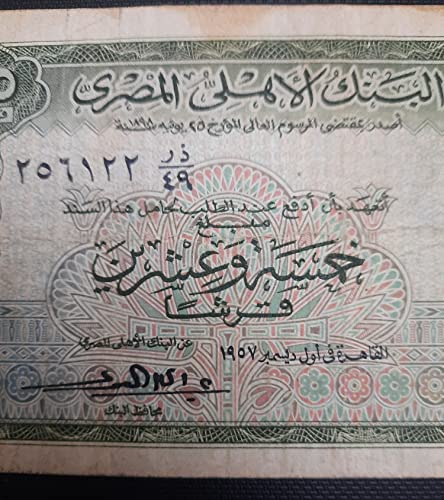 البنك الأهلى المصرى
أصدر بمقتضى المرسوم العالى المؤرخ ٢٥ يونيه سنة ١٨٩٨
ذر
٤٩
٢٥٦١٢٢
أتعهد بأن أدفع عند الطلب لحامل هذا السند
مبلغ
خمسة وعشرين
قرشا
القاهرة فى أول ديسمبر ١٩٥٧
عن البنك الأهلى المصرى
محافظ البنك